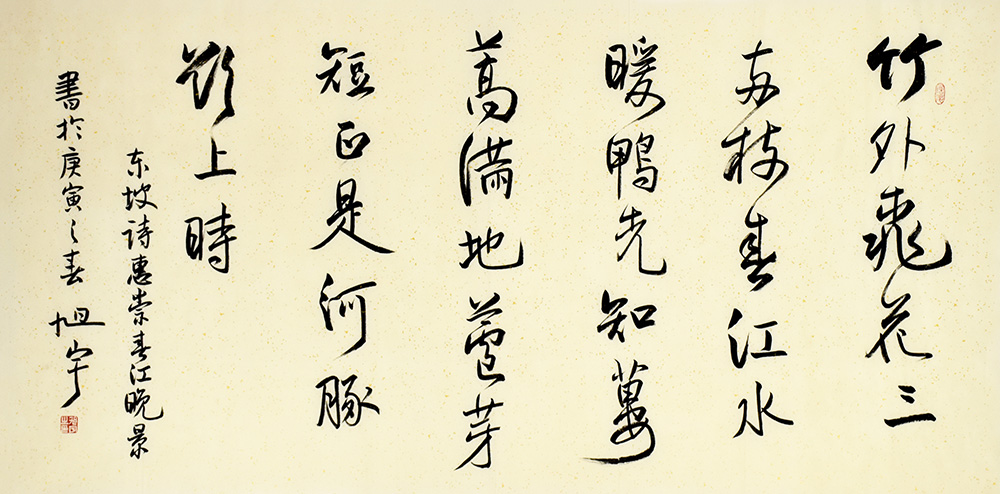 竹外桃花三
两枝春江水
暖鴨先知蔞
蒿满地蘆芽
短正是河豚
欲上時
东坡诗惠崇春江晚景
書於庚寅之春 旭宇